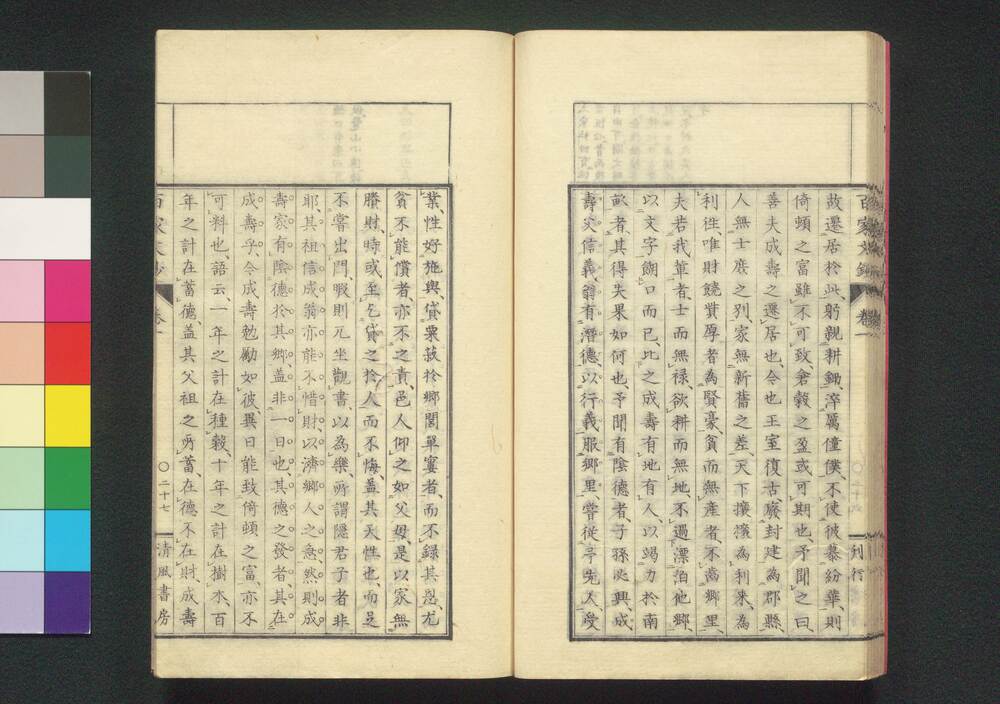 故遷居於此、躬親耕鋤、淬厲僮僕、不使彼慕紛華、則
倚頓之富雖不可致、倉穀之盈或可期也、予聞之曰、
善夫成壽之遷居也、今也王室復古、廢封建為郡縣、
人無士庶之列、家無新舊之差、天下攘攘為利來、為
利往、唯財饒貲厚者為賢豪、貧而無產者、不齒鄉里、
夫若我輩者、士而無祿、欲耕而無地、不過漂泊他鄉、
以文字餬口而已、比之成壽有地有人、以竭力於南
畝者、其得失果如何也、予聞有陰德者、子孫必興、成
壽父信義翁有潛德、以行義服鄉里、嘗從亭先人受
業、性好施與、貸粟菽於鄉閭單寠者、而不錄其恩、尤
貧不能償者、亦不之責、邑人仰之如父母、是以家無
賸財、時或至乞貸之於人而不悔、蓋其天性也、而足
不嘗出門、暇則兀坐觀書、以為樂、所謂隱君子者非
耶、其祖信成翁亦能不惜財、以濟鄉人之急、然則成
壽家有陰德於其鄉、蓋非一日也、其德之發者、其在
成壽乎、今成壽勉勵如彼、異日能致倚頓之富、亦不
可料也、語云、一年之計在種穀、十年之計在樹木、百
年之計在蓄德、蓋其父祖之所蓄、在德不在財、成壽
百家文鈔 卷一 〇二十七 清風書房